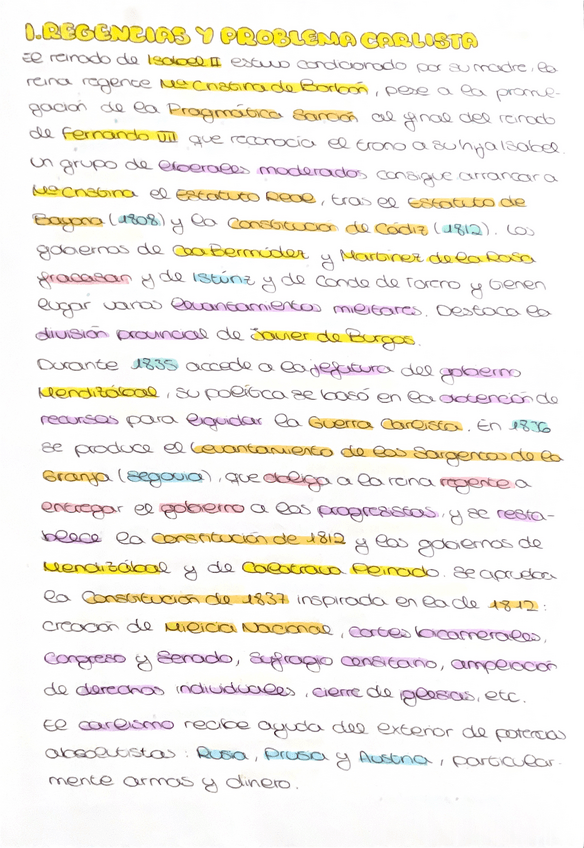 1.REGENCIAS Y PROBLEMA CARLISTA
El reinado de Isabel II estuvo condicionado por su madre, la
reina regente Mª Cristina de Borbón, pese a la promul-
gación de la Pragmática Sanción al final del reinado
de Fernando VII que reconocía el trono a su hija Isabel.
Un grupo de liberales moderados consigue arrancar a
Mª Cristina el Estatuto Real, tras el Estatuto de
Bayona (1808) y la Constitución de Cádiz (1812). Los
gobiernos de Cea Bermúdez y Martínez de la Rosa
fracasan y de Istúriz y de Conde de Toreno y tienen
lugar varios levantamientos militares. Destaca la
división provincial de Javier de Burgos.
Durante 1835 accede a la jefatura del gobierno
Mendizábal, su política se basó en la obtención de
recursos para liquidar la Guerra Carlista. En 1836
se produce el Levantamiento de los Sargentos de la
Granja (Segovia), que obliga a la reina regente a
entregar el gobierno a los progresistas, y se resta-
blece la Constitución de 1812 y los gobiernos de
Mendizábal y de Calatrava Peinado. Se aprueba
la Constitución de 1837 inspirada en la de 1812:
creación de Milicia Nacional, cortes bicamerales,
Congreso y Senado, sufragio censitario, ampliación
de derechos individuales, cierre de iglesias, etc.
El carlismo recibe ayuda del exterior de potencias
absolutistas: Rusia, Prusia y Austria, particular-
mente armas y dinero.